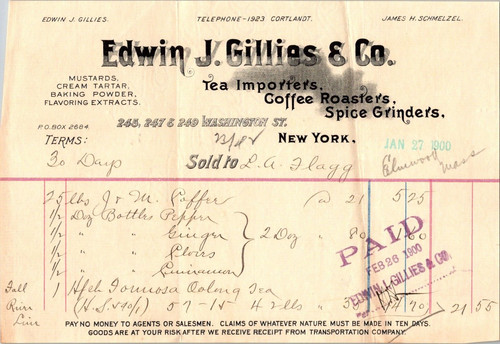 EDWIN J. GILLIES. TELEPHONE-1923 CORTLANDT. JAMES H. SCHMELZEL.
Edwin J. Gillies & Co.
MUSTARDS,
CREAM TARTAR,
BAKING POWDER,
FLAVORING EXTRACTS.
Tea Importers,
Coffee Roasters,
Spice Grinders.
245, 247 & 249 WASHINGTON ST.
P.O. BOX 2684.
NEW YORK. JAN 27 1900
TERMS:
30 Days Sold to L. A. Flagg Elmwood Mass
25 lbs J & M Coffee @ 21 5 25
1/2 Doz Bottles Pepper
1/2 " " Ginger 2 Doz " 80 1 60
1/2 " " Cloves
1/2 " " Cinnamon
Fall 1 H/ch Formosa Oolong Tea
57-15 42 lbs " 35 14 70 21 55
PAID
FEB 26 1900
EDWIN J. GILLIES & CO.
PAY NO MONEY TO AGENTS OR SALESMEN. CLAIMS OF WHATEVER NATURE MUST BE MADE IN TEN DAYS.
GOODS ARE AT YOUR RISK AFTER WE RECEIVE RECEIPT FROM TRANSPORTATION COMPANY.